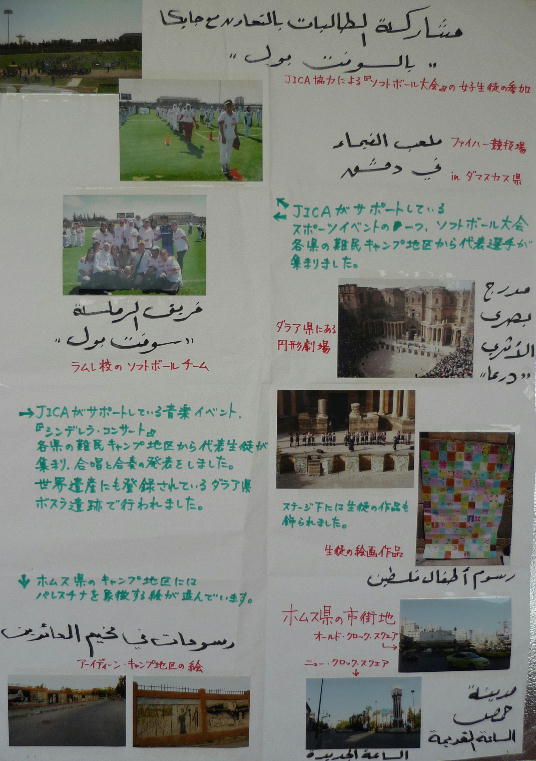 مشاركة الطالبات بالتعاون مع جايكا
"بالسوفت بول"
JICA協力による『ソフトボール大会』の女子生徒の参加
ملعب الفيحاء
في دمشق
ファイハー競技場
in ダマスカス県
JICAがサポートしている
スポーツイベントの1つ、ソフトボール大会
各県の難民キャンプ地区から代表選手が
集まりました。
فريق الرملة
"سوفت بول"
ラムレ校のソフトボールチーム
ダラア県にある
円形劇場
مدرج
بصرى
الأثري
"درعا"
→JICAがサポートしている音楽イベント、
『シンデレラ・コンサート』
各県の難民キャンプ地区から代表生徒が
集まり、合唱と合奏の発表をしました。
世界遺産にも登録されているダラア県
ボスラ遺跡で行われました。
ステージ下には生徒の作品も
飾られました。
生徒の絵画作品
رسوم أطفال فلسطين
↓ホムス県のキャンプ地区には
パレスチナを象徴する絵が並んでいます。
رسومات في مخيم العائدين
アーイディーン・キャンプ地区の絵
ホムス県の市街地
オールド・クロック・スクェア
ニュー・クロック・スクェア
مدينة
حمص
الساعة القديمة
الساعة الجديدة